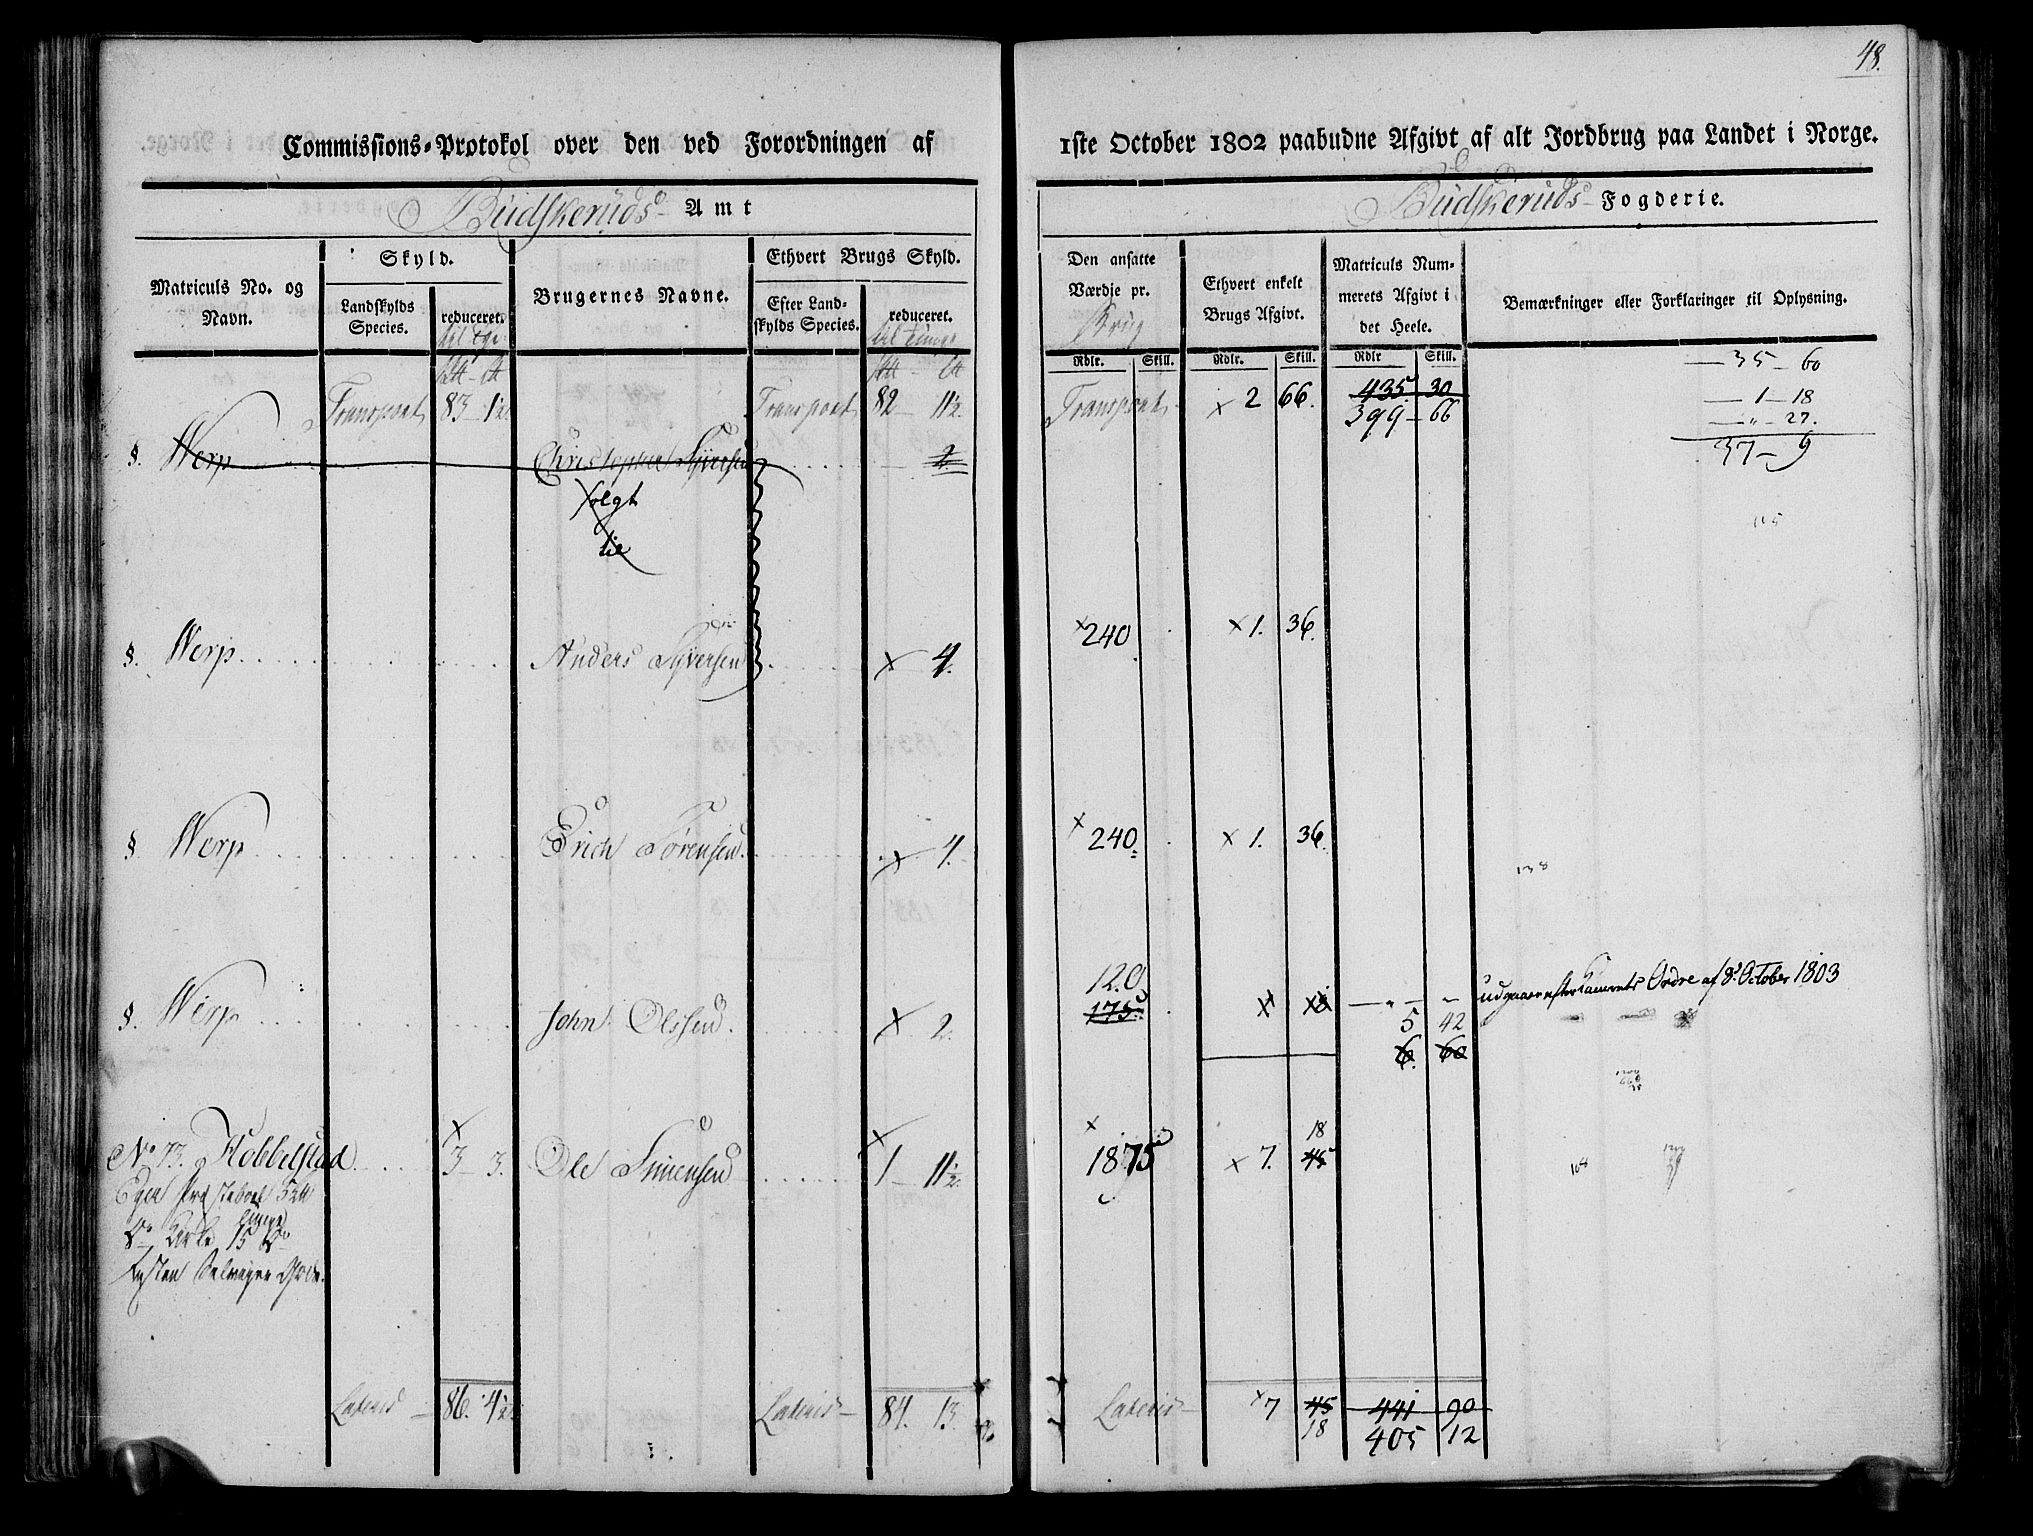 48.
Commissions-Protokol over den ved Forordningen af
1ste October 1802 paabudne Afgivt af alt Jordbrug paa Landet i Norge.
Budskeruds Amt
Budskeruds Fogderie.
Matriculs No. og Navn.
Skyld.
Landskylds Species.
reduceret.
Brugernes Navne.
Ethvert Brugs Skyld.
Efter Landskylds Species.
reduceret.
til Tunge
Den ansatte Værdje pr. Brug
Ethvert enkelt Brugs Afgivt.
Matriculs Nummerets Afgivt i det Heele.
Bemærkninger eller Forklaringer til Oplysning.
Rdlr. Skill. Rdlr. Skill. Rdlr Skill.
35 - 60
1 - 18
" - 27.
37 - 9
Transport 83 - 1½ Transport 82 - 11½ Transport x 2 66. 435. 30
399 - 66
§. Werp Christopher Syversen 2.
folgt
til
§. Werp Anders Syversen x 4. x 240 x 1. 36.
§ Werp Erich Sørensen x 4. x 240 x 1. 36.
120
§. Werp John Olssen x 2. 175 - " - udgaaer efter Kamrets Ordre af 8 October 1803
5 42
6. 60
18
No 73. Hobbelstad x 3 - 3. Ole Simensen x 1 - 11½ x 1875 x 7. 45
15
Lateris 86. 4½ Lateris 84. 13 Lateris x 7 45 441 90
18 405 12